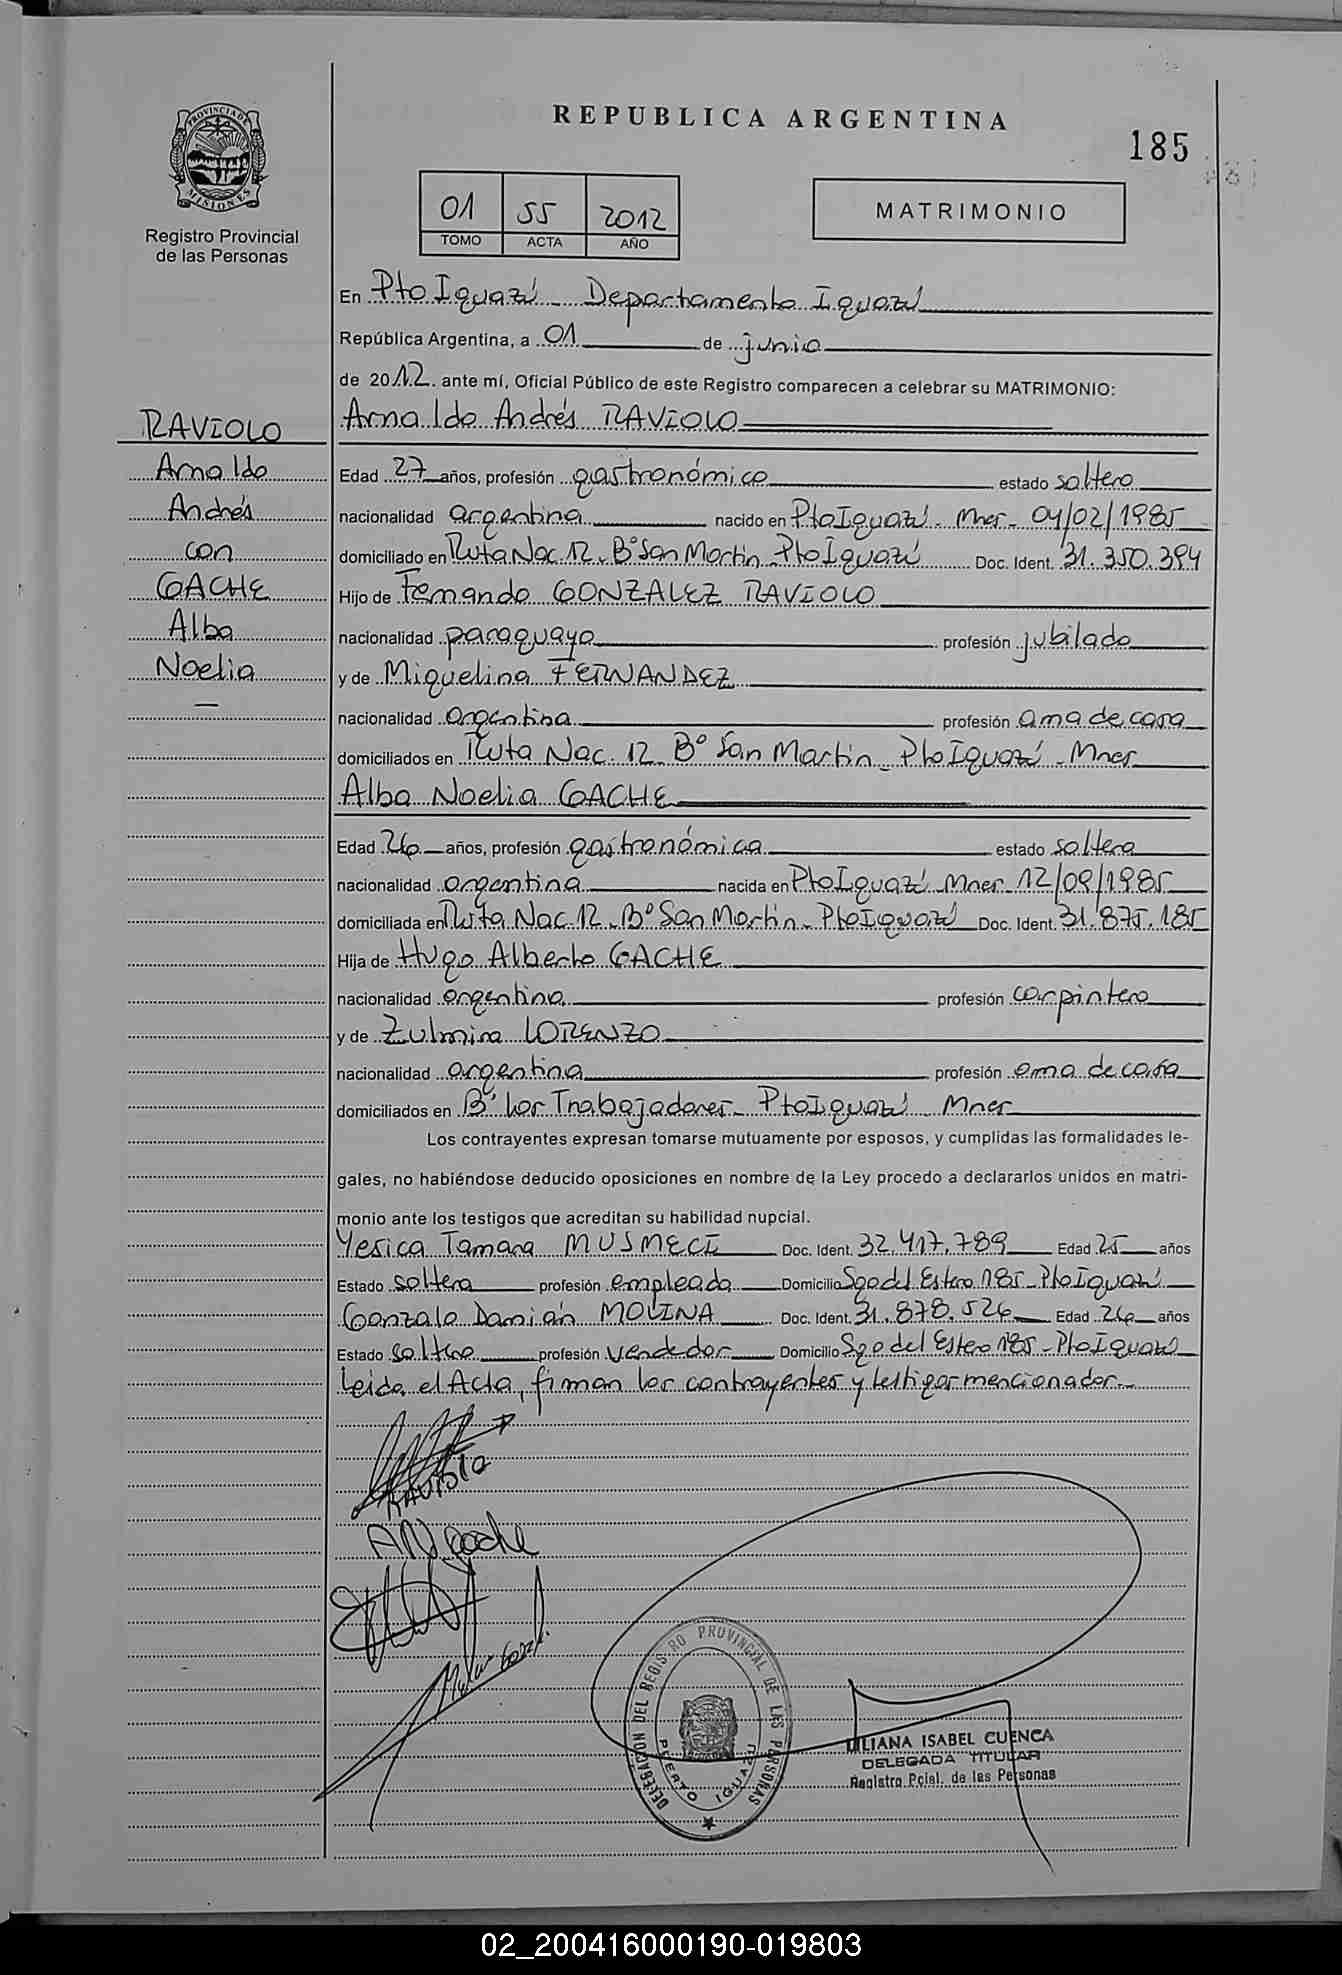 REPUBLICA ARGENTINA
185
PROVINCIA DE
MISIONES
Registro Provincial
de las Personas
01 55 2012
TOMO ACTA AÑO
MATRIMONIO
En Pto Iguazú Departamento Iguazú
República Argentina, a 01 de junio
de 2012 ante mí, Oficial Público de este Registro comparecen a celebrar su MATRIMONIO:
Arnaldo Andrés RAVIOLO
RAVIOLO
Arnaldo
Andrés
con
GACHE
Alba
Noelia
Edad 27 años, profesión gastronómico estado soltero
nacionalidad argentina nacido en Pto Iguazú - Mnes - 04/02/1985
domiciliado en Ruta Nac. 12 - Bº San Martín - Pto Iguazú Doc. Ident. 31.350.394
Hijo de Fernando GONZALEZ RAVIOLO
nacionalidad paraguaya profesión jubilado
y de Miquelina FERNANDEZ
nacionalidad argentina profesión ama de casa
domiciliados en Ruta Nac. 12 Bº San Martín - Pto Iguazú - Mnes
Alba Noelia GACHE
Edad 26 años, profesión gastronómica estado soltera
nacionalidad argentina nacida en Pto Iguazú Mnes 12/09/1985
domiciliada en Ruta Nac. 12 - Bº San Martín - Pto Iguazú Doc. Ident. 31.875.185
Hija de Hugo Alberto GACHE
nacionalidad argentina profesión carpintero
y de Zulmira LORENZO
nacionalidad argentina profesión ama de casa
domiciliados en Bº los Trabajadores - Pto Iguazú Mnes
Los contrayentes expresan tomarse mutuamente por esposos, y cumplidas las formalidades le-
gales, no habiéndose deducido oposiciones en nombre de la Ley procedo a declararlos unidos en matri-
monio ante los testigos que acreditan su habilidad nupcial.
Yesica Tamara MUSMECI Doc. Ident. 32.417.789 Edad 25 años
Estado soltera profesión empleada Domicilio Sgo del Estero 185 - Pto Iguazú
Gonzalo Damián MOLINA Doc. Ident. 31.878.526 Edad 26 años
Estado soltero profesión vendedor Domicilio Sgo del Estero 185 - Pto Iguazú
Leida el Acta, firman los contrayentes y testigos mencionados.
RAVIOLO
DELEGACION DEL REGISTRO PROVINCIAL DE LAS PERSONAS
PUERTO IGUAZU
LILIANA ISABEL CUENCA
DELEGADA TITULAR
Registro Pcial. de las Personas
02_200416000190-019803